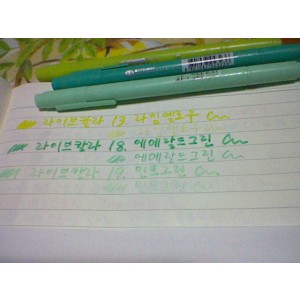 라이브칼라 13 라임옐로우
라이브칼라 18. 에메랄드그린
에메랄드그린
라이브칼라 19. 민트그린
민트그린